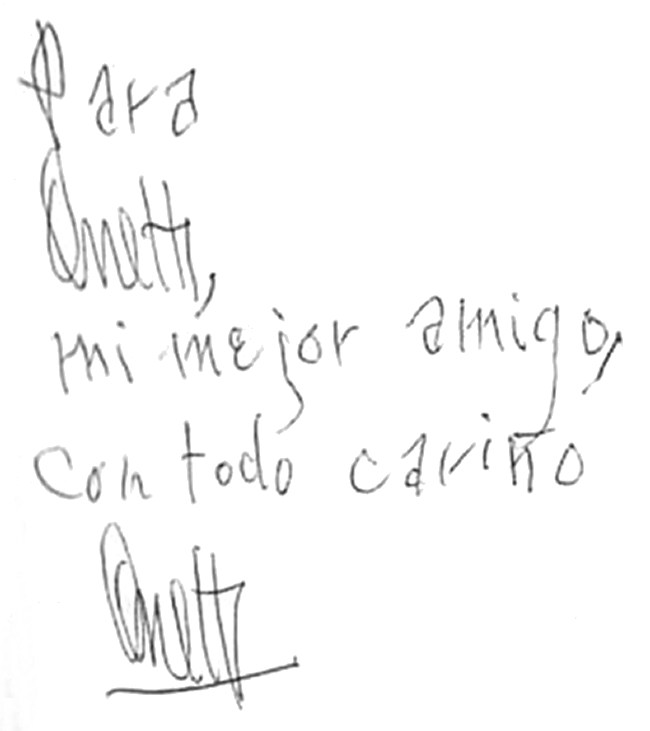 Para
Onetti,
mi mejor amigo,
con todo cariño
Onetti